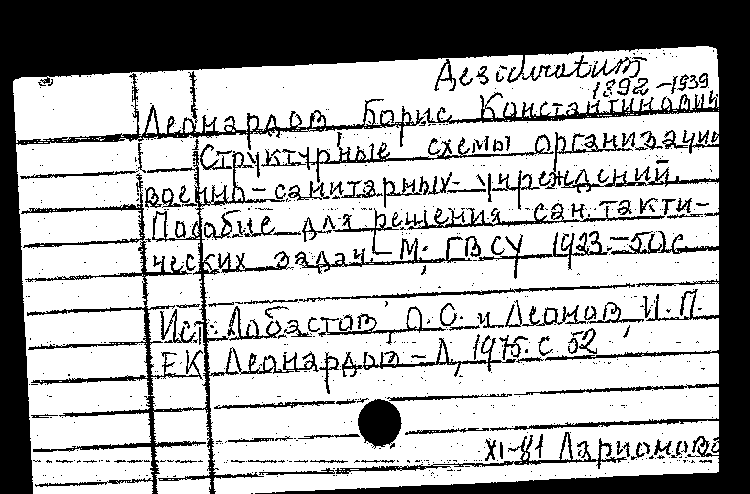 Дезidеratum
1892-1939
Леонардов, Борис Константинович
Структурные схемы организации
военно-санитарных учреждений.
Пособие для решения сан. такти-
ческих задач.- М; ГВСУ 1923.-50 с.
Ист: Лобастов, О.С. и Леонов, И.П.
Е К Леонардов - Л, 1975. с 52
XI-81 Ларионова